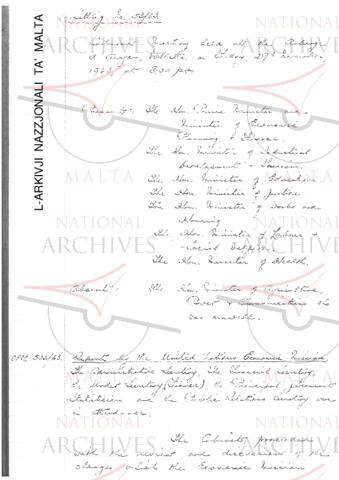 Sitting No. 52/63.
Cabinet Meeting held at the Auberge
d'Aragon, Valletta, on Friday, 29th November,
1963, at 5.30 pm
Present:- The Hon. Prime Minister and
Minister of Economic
Planning & Finance.
The Hon. Minister of Industrial
Development & Tourism.
The Hon. Minister of Education.
The Hon. Minister of Justice.
The Hon. Minister of Works and
Housing
The Hon. Minister of Labour &
Social Welfare.
The Hon. Minister of Health.
Absent:- The Hon. Minister of Agriculture,
Power & Communications who
was unwell.
Reports by the United Nations Economic Mission.
The Administrative Secretary, the Financial Secretary,
the Under Secretary (Finance), the Principal Government
Statistician and the Public Relations Secretary were
in attendance.
The Cabinet proceeded
with the review and discussion of the
changes which the Economic Mission
L-ARKIVJI NAZZJONALI TA' MALTA
NATIONAL
ARCHIVES
MALTA